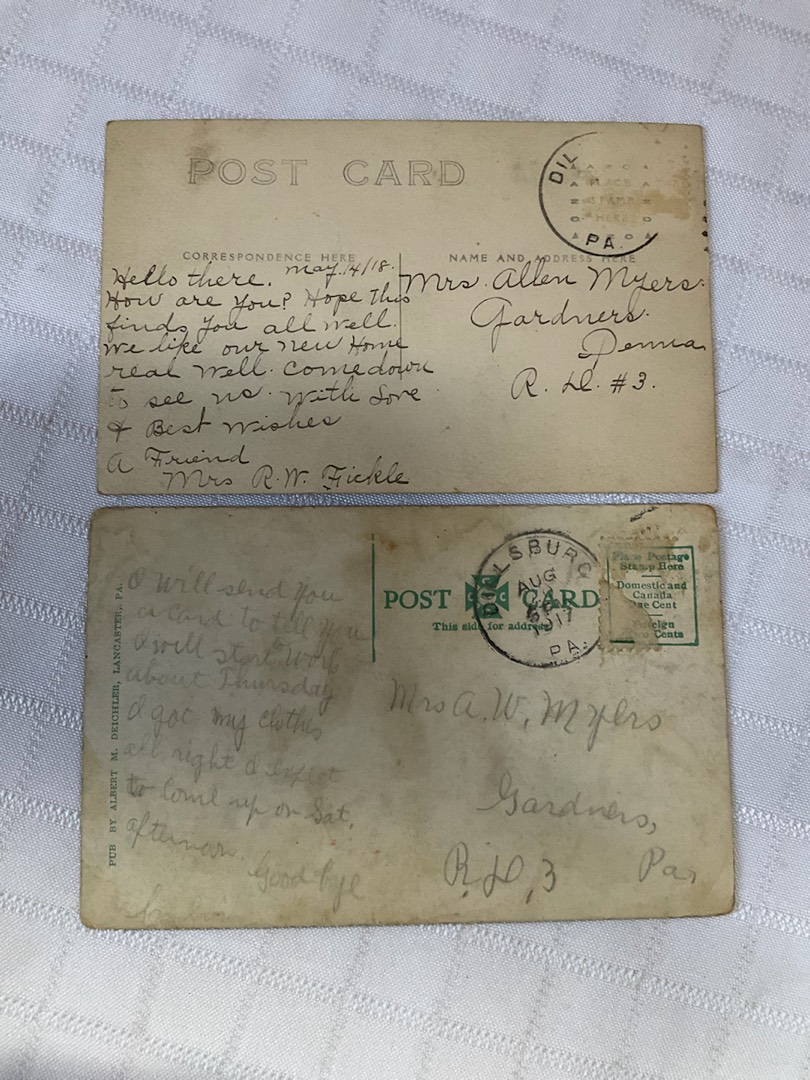 POST CARD
DIL
PA.
PLACE
STAMP
HERE
CORRESPONDENCE HERE
NAME AND ADDRESS HERE
May, 14/18.
Hello there.
How are you? Hope this
finds you all well.
We like our new Home
real well. Come down
to see us. With Love
& Best Wishes
A Friend
Mrs R.W. Fickle
Mrs. Allen Myers.
Gardners.
Penna
R. D. #3.
PUB BY ALBERT M. DEICHLER, LANCASTER, PA.
I will send you
a card to tell you
I will start work
about Thursday
I got my clothes
all right I expect
to come up on Sat,
afternoon.
Good bye
POST CARD
This side for address
DILLSBURG
AUG
1917
PA.
Place Postage
Stamp Here
Domestic and
Canada
One Cent
Foreign
Two Cents
Mrs A. W. Myers
Gardners,
R, D, 3 Pa,